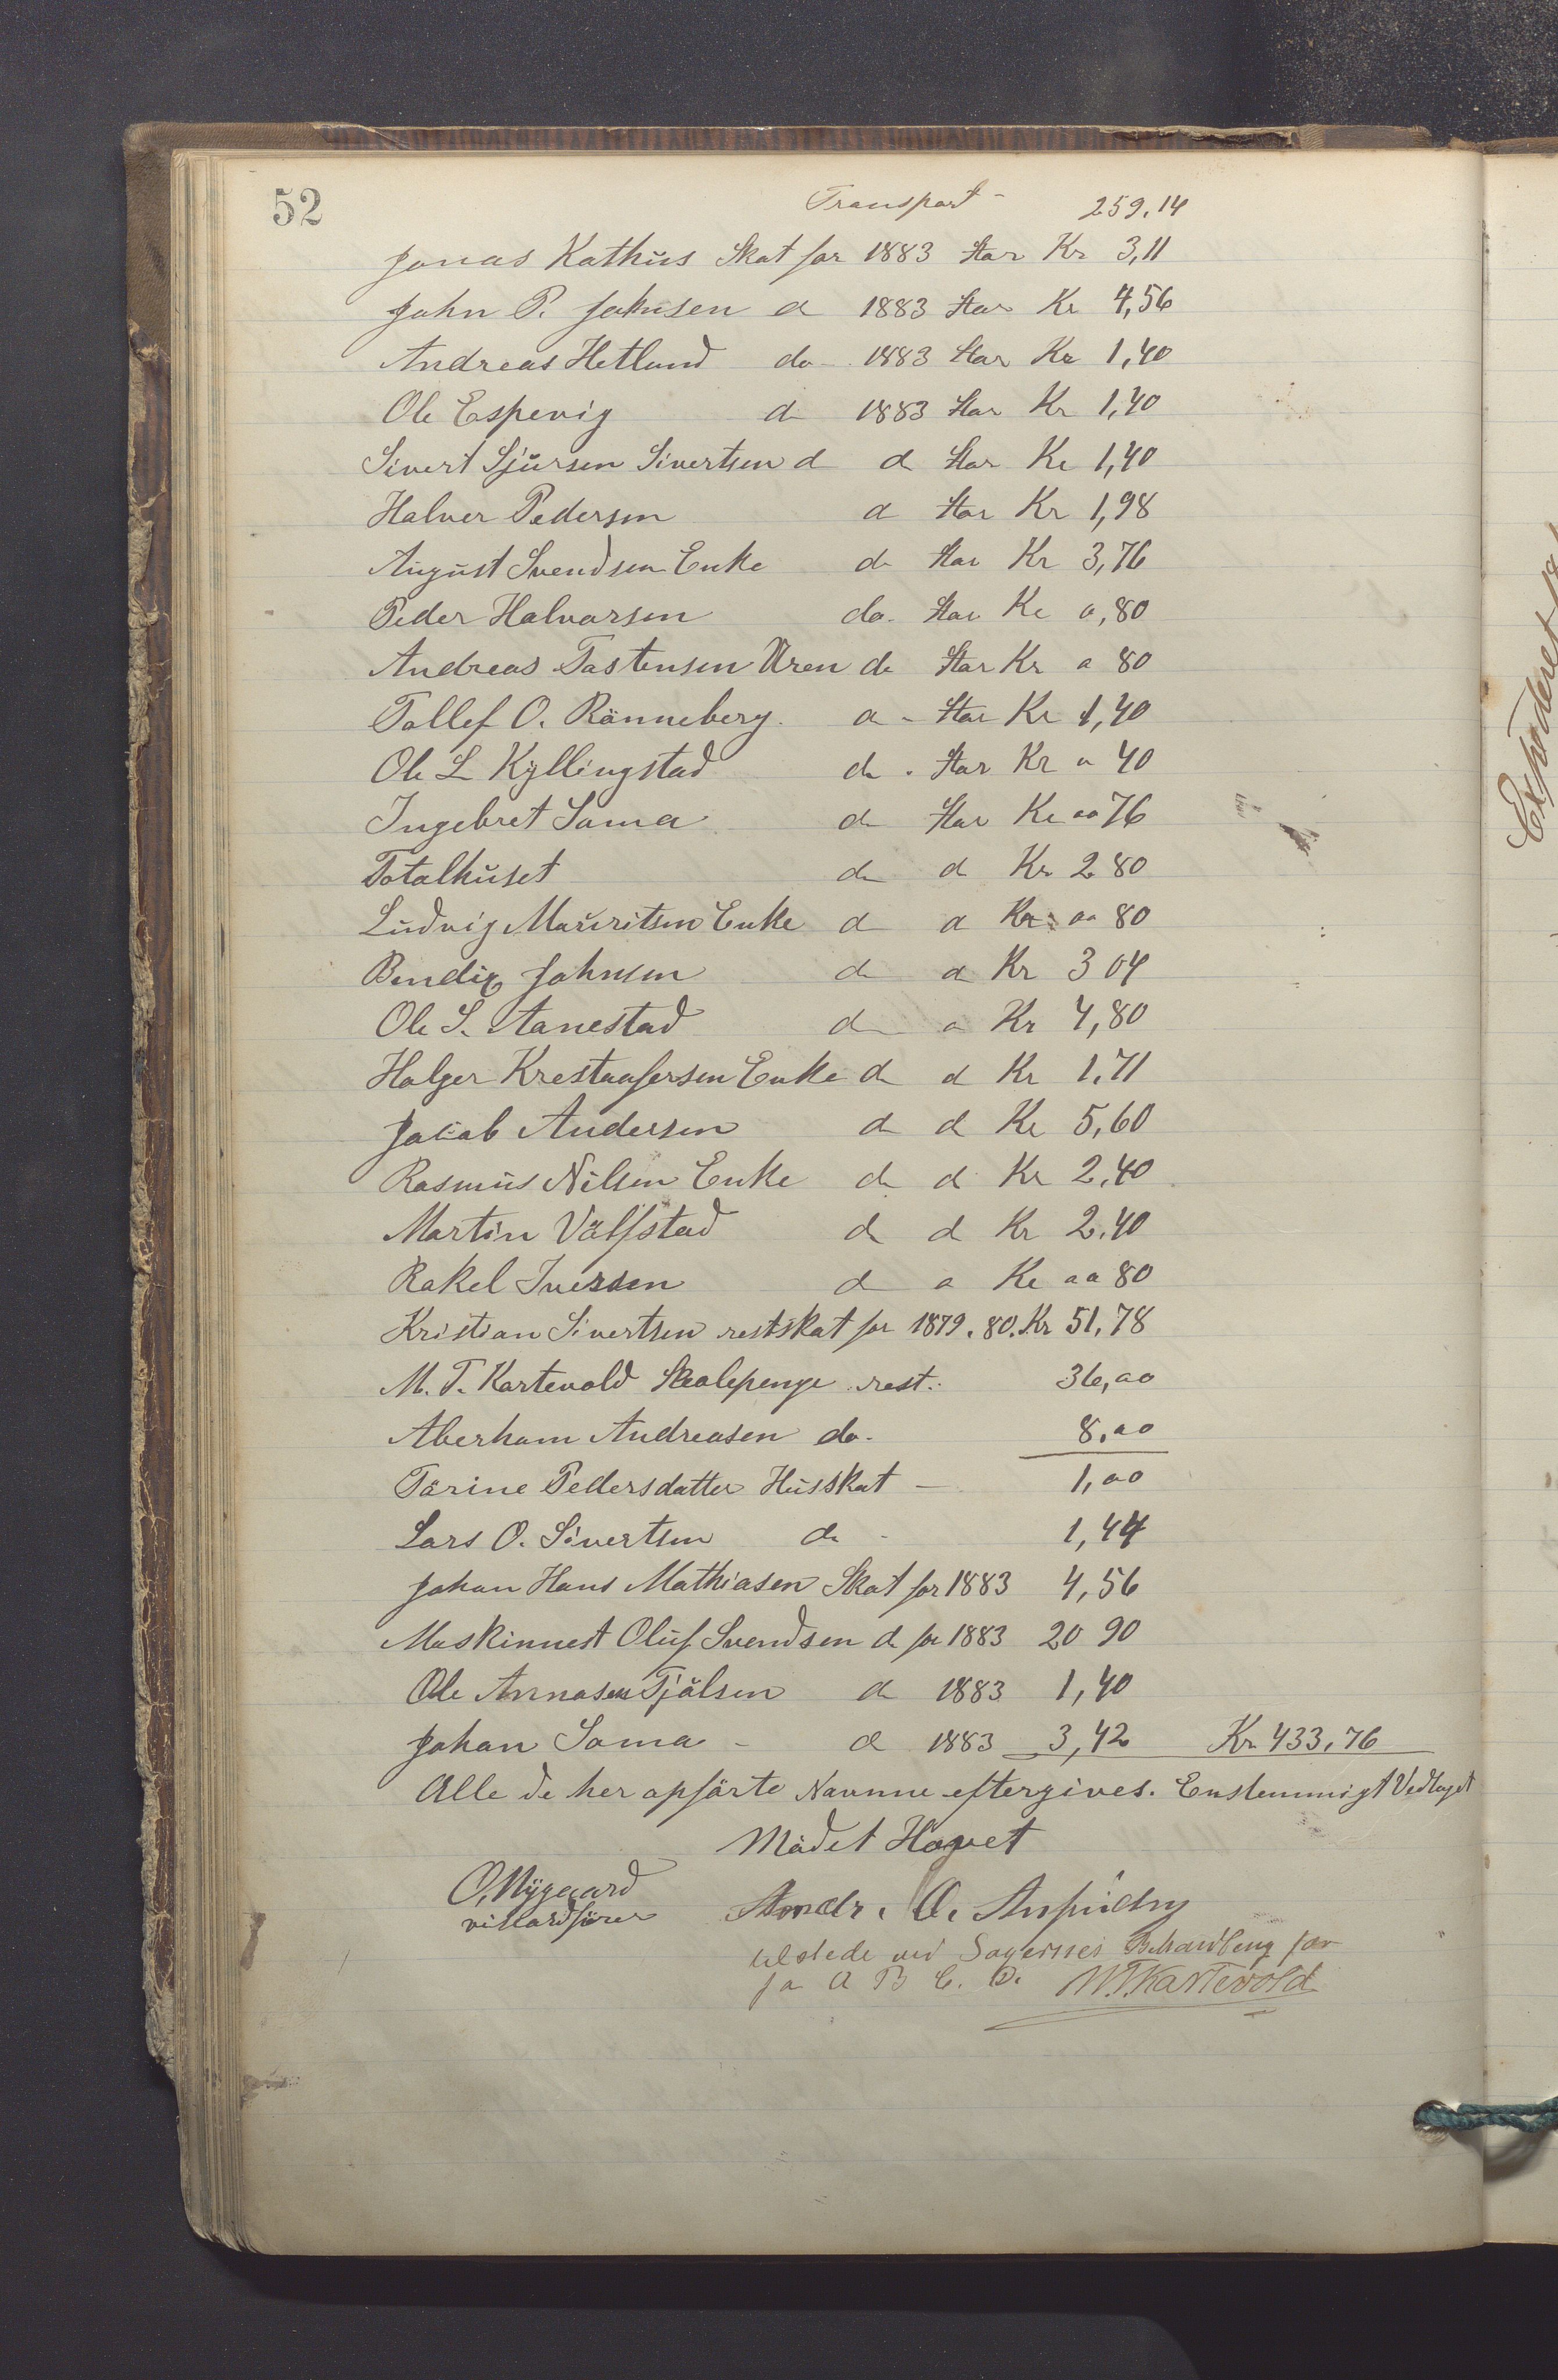 52
Transport - 259,14
Jonas Kathus Skat for 1883 stor Kr 3,11
John P. Johnsen d 1883 stor Kr 4,56
Andreas Hetland do - 1883 stor Kr 1,40
Ole Espevig d 1883 stor Kr 1,40
Sivert Sjursen Sivertsen d d stor Kr 1,40
Halver Pedersen d stor Kr 1,98
August Svendsen Enke d stor Kr 3,76
Peder Halvorsen do. stor Kr 0,80
Andreas Tostensen Uren do stor Kr 0 80
Tollef O. Rönneberg. d - stor Kr 1,40
Ole L Kyllingstad d . stor Kr 0 40
Ingebret Soma d stor Kr 00 76
Totalhuset d d Kr 2 80
Ludvig Mauritsen Enke d d Kr 00 80
Bendix Johnsen d d Kr 3 04
Ole S. Aanestad d d Kr 4,80
Holger Krestoofersen Enke d d Kr 1.71
Jacob Andersen d d Kr 5,60
Rasmus Nilsen Enke d d Kr 2,40
Martin Völstad d d Kr 2.40
Rakel Iversen d d Kr 00 80
Kristian Sivertsen restskat for 1879.80. Kr 51,78
M. T. Kartevold Skolepenge rest. 36,00
Aberham Andreasen do. 8,00
Törine Pedersdatter Husskat - 1,00
Lars O. Sivertsen d - 1,44
Johan Hans Mathiasen Skat for 1883 4,56
Maskinnest Oluf Svendsen d for 1883 20 90
Ole Tjölsen d 1883 1,40
Johan Soma - d 1883 3,42 Kr 433,76
Alle de her opförte Navnne eftergives. Enstemmigt Vedtaget
Mödet Hævet
O. Nygaard
viseordförer
Andr. O.
tilstede ved Sagernes Behandling for
A B C. D. M.T.Kartevold
Expederet